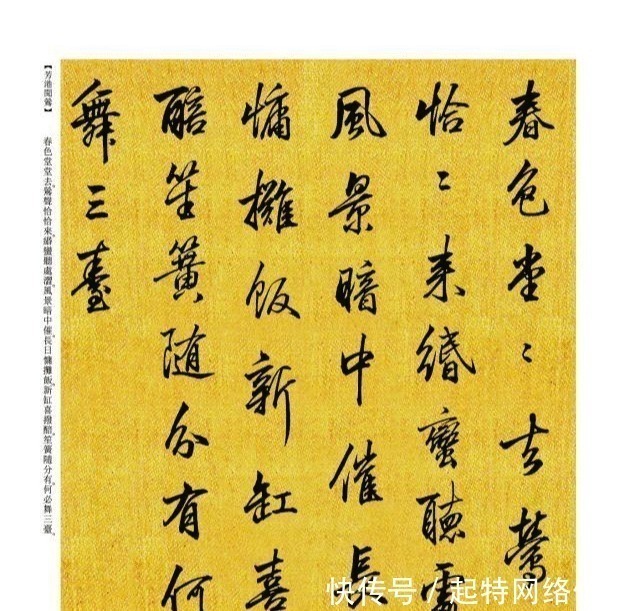 春色堂〻去鶯
恰〻来緡蠻聴處
風景暗中催長
慵攤飯新缸喜
醅笙簧随分有何
舞三臺
【芳港聞鶯】 春色堂堂去。鶯聲恰恰來。緡蠻聽處。風景暗中催。長日慵攤飯。新缸喜撥醅。笙簧隨分有。何必舞三臺。
快传号／起特网络